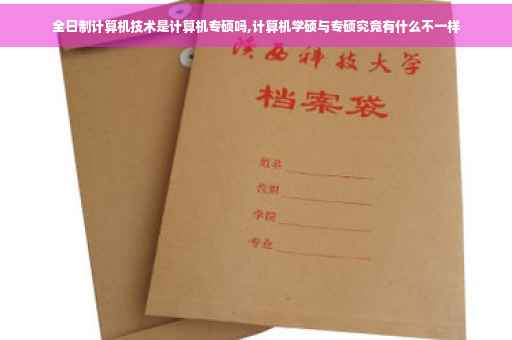 全日制计算机技术是计算机专硕吗,计算机学硕与专硕究竟有什么不一样
陕西科技大学
档案袋
学院
专业